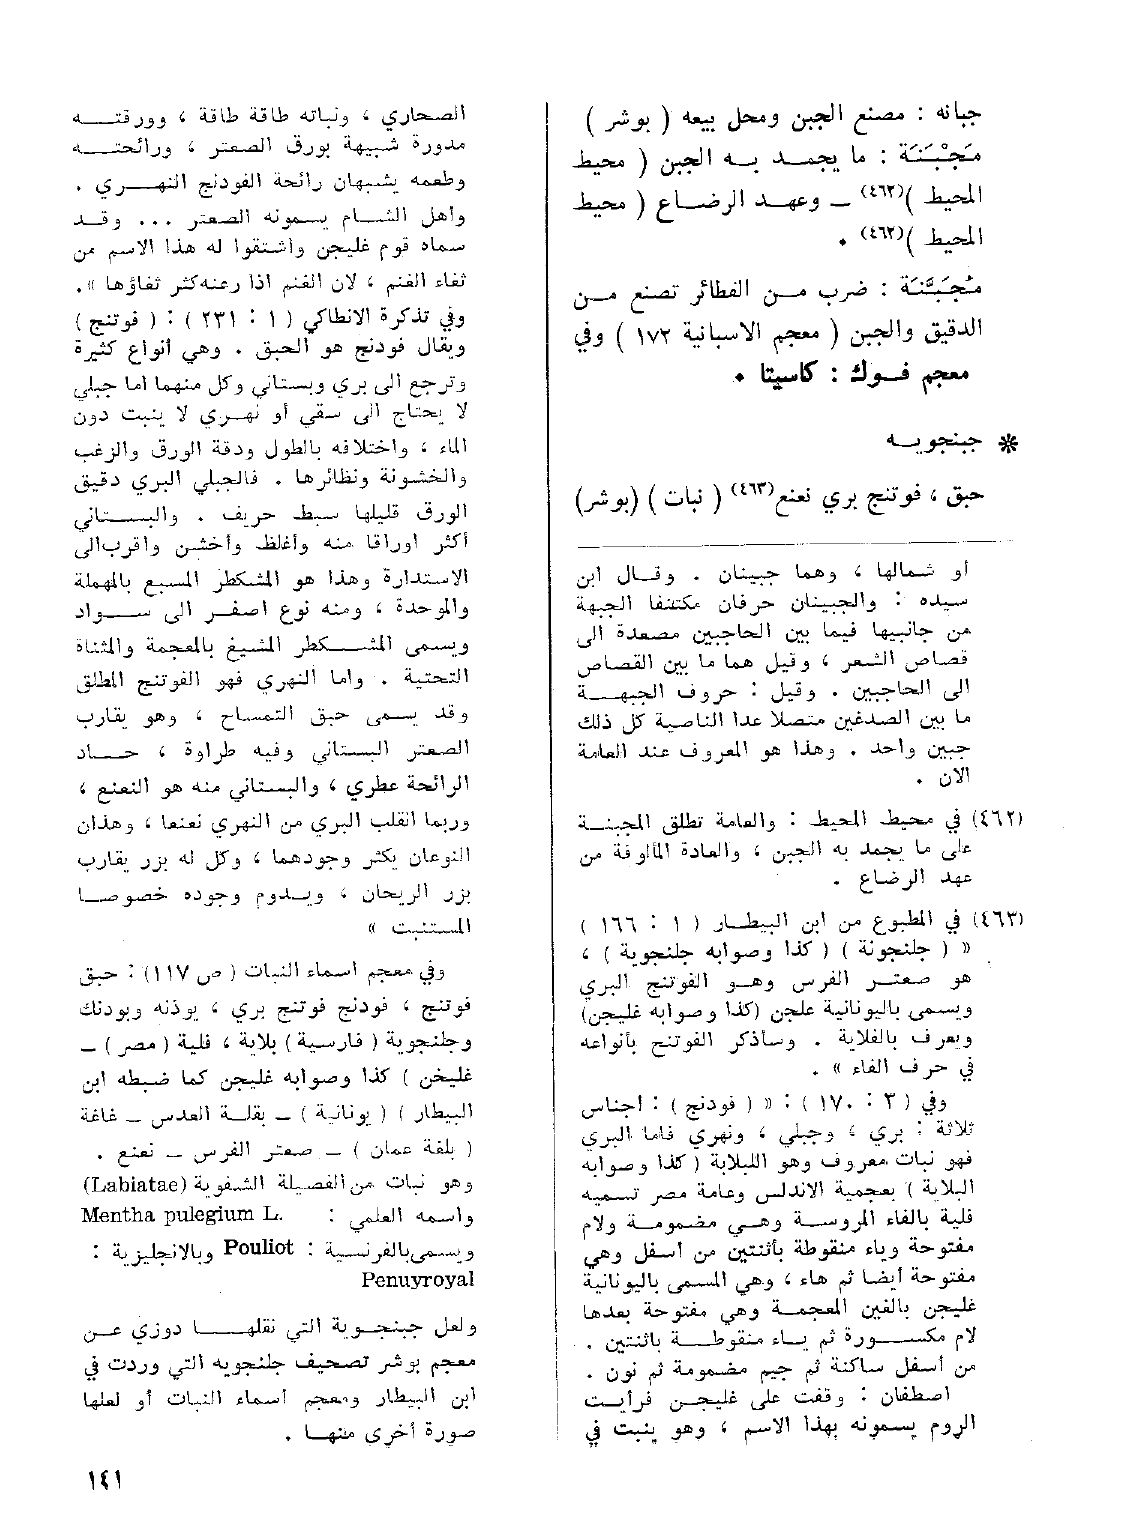 جبانه : مصنع الجبن ومحل بيعه ( بوشر )
مَجْبَنَة : ما يجمد به الجبن ( محيط
المحيط )(٤٦٢) ـ وعهد الرضاع ( محيط
المحيط )(٤٦٢) .
مُجَبَّنَة : ضرب من الفطائر تصنع من
الدقيق والجبن ( معجم الاسبانية ١٧٢ ) وفي
معجم فوك : كاسيتا .
* جبنجويه
حبق ، فوتنج بري نعنع(٤٦٣) ( نبات ) (بوشر)
أو شمالها ، وهما جبينان . وقال ابن
سيده : والجبينان حرفان مكتنفا الجبهة
من جانبيها فيما بين الحاجبين مصعدة الى
قصاص الشعر ، وقيل هما ما بين القصاص
الى الحاجبين . وقيل : حروف الجبهة
ما بين الصدغين متصلا عدا الناصية كل ذلك
جبين واحد . وهذا هو المعروف عند العامة
الان .
(٤٦٢) في محيط المحيط : والعامة تطلق المجبنة
على ما يجمد به الجبن ، والعادة المألوفة من
عهد الرضاع .
(٤٦٣) في المطبوع من ابن البيطار ( ١ : ١٦٦ )
« ( جلنجونة ) ( كذا وصوابه جلنجوية ) ،
هو صعتر الفرس وهو الفوتنج البري
ويسمى باليونانية علجن (كذا وصوابه غليجن)
ويعرف بالغلاية . وسأذكر الفوتنج بأنواعه
في حرف الفاء » .
وفي ( ٣ : ١٧٠ ) : « ( فودنج ) : اجناس
ثلاثة : بري ، وجبلي ، ونهري فاما البري
فهو نبات معروف وهو اللبلابة ( كذا وصوابه
البلاية ) بعجمية الاندلس وعامة مصر تسميه
فلية بالفاء المروسة وهي مضمومة ولام
مفتوحة وياء منقوطة بأثنتين من أسفل وهي
مفتوحة أيضا ثم هاء ، وهي المسمى باليونانية
غليجن بالغين المعجمة وهي مفتوحة بعدها
لام مكسورة ثم ياء منقوطة باثنتين .
من أسفل ساكنة ثم جيم مضمومة ثم نون .
اصطفان : وقفت على غليجن فرأيت
الروم يسمونه بهذا الاسم ، وهو ينبت في
الصحاري ، ونباته طاقة طاقة ، وورقته
مدورة شبيهة بورق الصعتر ، ورائحته
وطعمه يشبهان رائحة الفودنج النهري .
وأهل الشام يسمونه الصعتر ... وقد
سماه قوم غليجن واشتقوا له هذا الاسم من
ثغاء الغنم ، لان الغنم اذا رعته كثر ثغاؤها » .
وفي تذكرة الانطاكي ( ١ : ٢٣١ ) : ( فوتنج )
ويقال فودنج هو الحبق . وهي أنواع كثيرة
وترجع الى بري وبستاني وكل منهما اما جبلي
لا يحتاج الى سقي أو نهري لا ينبت دون
الماء ، واختلافه بالطول ودقة الورق والزغب
والخشونة ونظائرها . فالجبلي البري دقيق
الورق قليلها سبط حريف . والبستاني
أكثر أوراقا منه وأغلظ وأخشن واقرب الى
الاستدارة وهذا هو المشكطر المسبع بالمهملة
والموحدة ، ومنه نوع اصفر الى سواد
ويسمى المشكطر المشيغ بالمعجمة والمثناة
التحتية . واما النهري فهو الفوتنج المطلق
وقد يسمى حبق التمساح ، وهو يقارب
الصعتر البستاني وفيه طراوة ، حاد
الرائحة عطري ، والبستاني منه هو النعنع ،
وربما انقلب البري من النهري نعنعا ، وهذان
النوعان يكثر وجودهما ، وكل له بزر يقارب
بزر الريحان ، ويدوم وجوده خصوصا
المستنبت »
وفي معجم اسماء النبات ( ص ١١٧) : حبق
فوتنج ، فودنج فوتنج بري ، بوذنه وبودنك
وجلنجوية ( فارسية ) بلاية ، فلية ( مصر ) ـ
غليخن ) كذا وصوابه غليجن كما ضبطه ابن
البيطار ) ( يونانية ) ـ بقلة العدس ـ غاغة
( بلغة عمان ) ـ صعتر الفرس ـ نعنع .
وهو نبات من الفصيلة الشفوية (Labiatae)
واسمه العلمي : Mentha pulegium L.
ويسمى بالفرنسية : Pouliot وبالانجليزية :
Penuyroyal
ولعل جبنجوية التي نقلها دوزي عن
معجم بوشر تصحيف جلنجويه التي وردت في
ابن البيطار ومعجم أسماء النبات أو لعلها
صورة أخرى منها .
١٤١